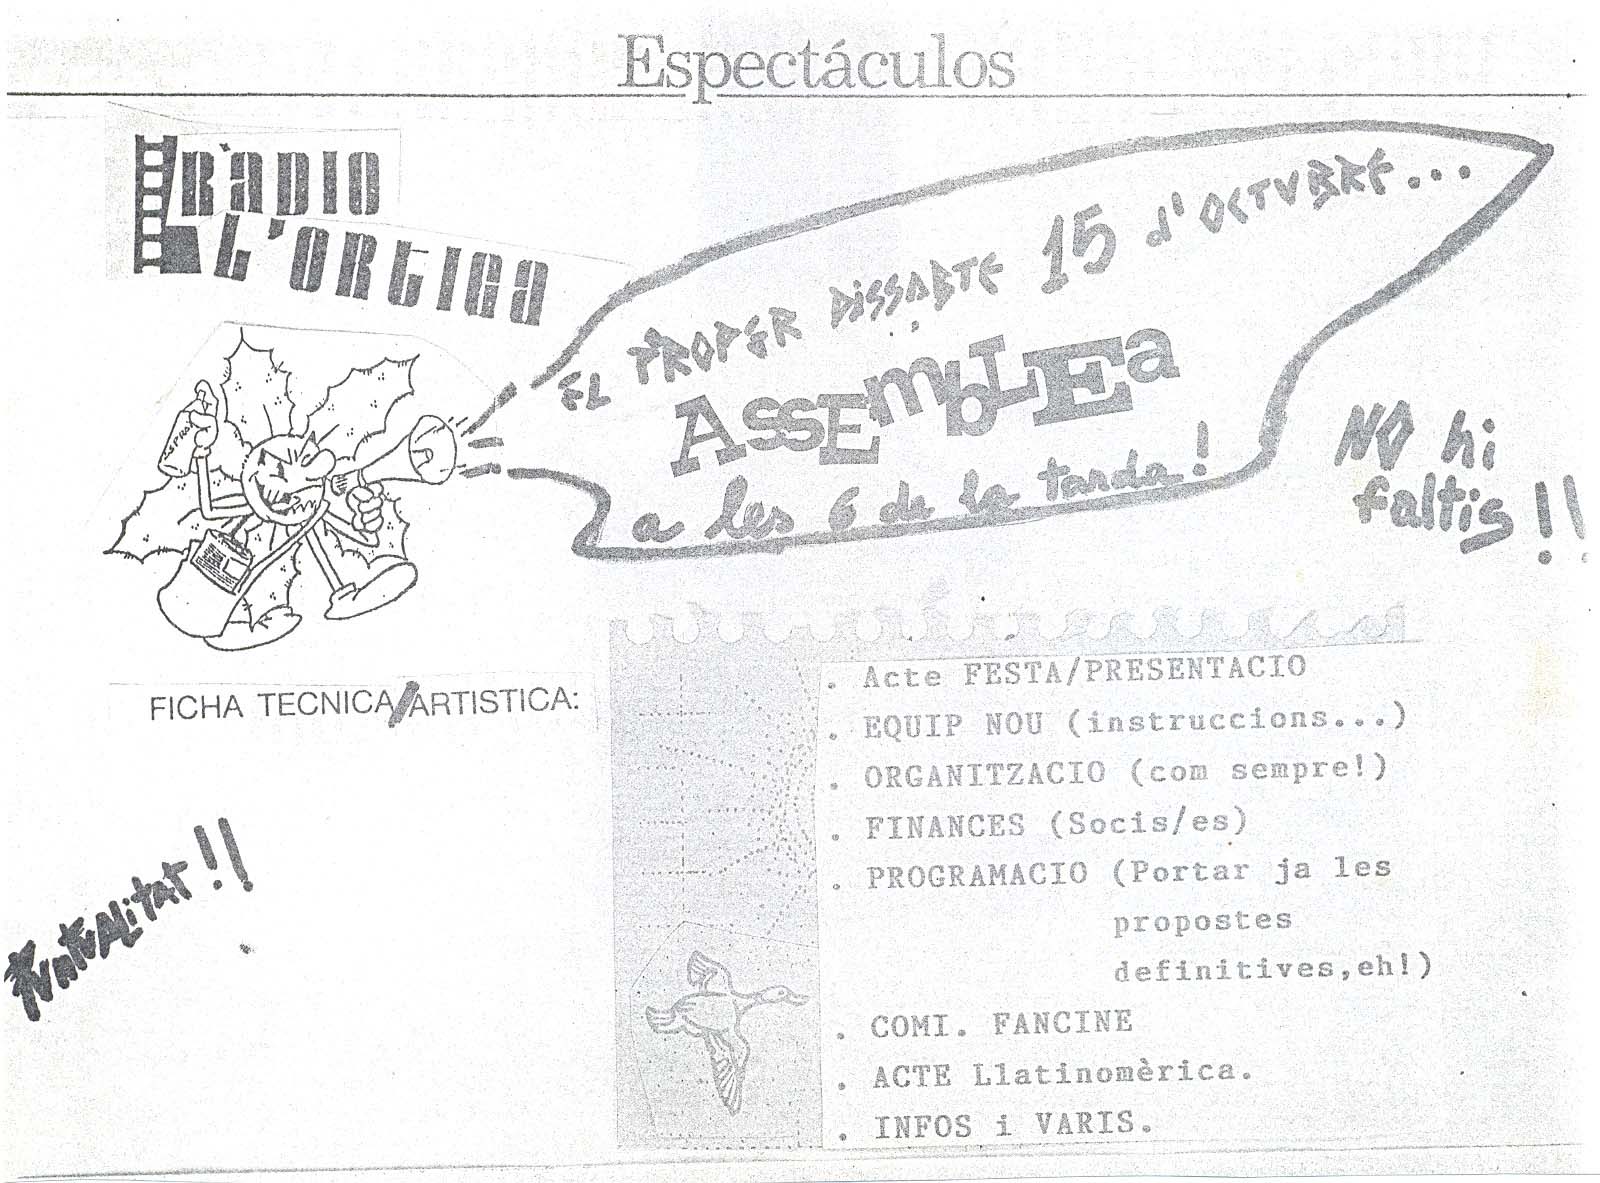 Espectáculos
RÀDIO
L'ORTIGA
EL PROPER DISSABTE 15 d'OCTUBRE...
ASSEmbLEa
a les 6 de la tarda!
NO hi
faltis!!
SPRAI
FICHA TECNICA/ARTISTICA:
PUNTUALitat!!
. Acte FESTA/PRESENTACIO
. EQUIP NOU (instruccions...)
. ORGANITZACIO (com sempre!)
. FINANCES (Socis/es)
. PROGRAMACIO (Portar ja les
propostes
definitives,eh!)
. COMI. FANCINE
. ACTE Llatinomèrica.
. INFOS i VARIS.